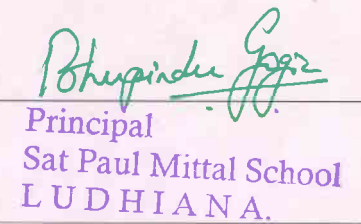 Bhupinder Gogia
Principal
Sat Paul Mittal School
LUDHIANA.